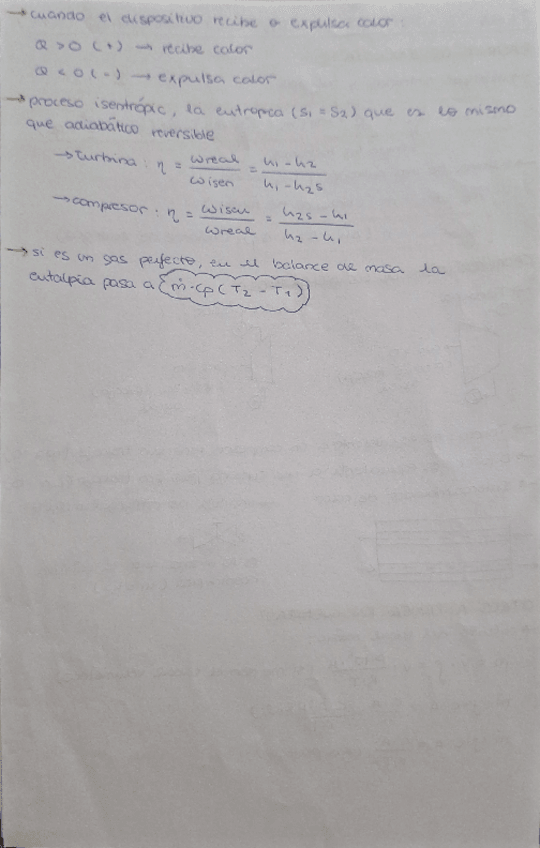 → cuando el dispositivo recibe o expulsa calor:
Q > 0 (+) → recibe calor
Q < 0 (-) → expulsa calor
→ proceso isentrópic, la entropica (s₁ = s₂) que es lo mismo
que adiabático reversible
→ turbina: η = wreal / wisen = h₁ - h₂ / h₁ - h₂s
→ compresor: η = wisen / wreal = h₂s - h₁ / h₂ - h₁
→ si es un gas perfecto, en el balance de masa la
entalpia pasa a ṁ · cp (T₂ - T₁)